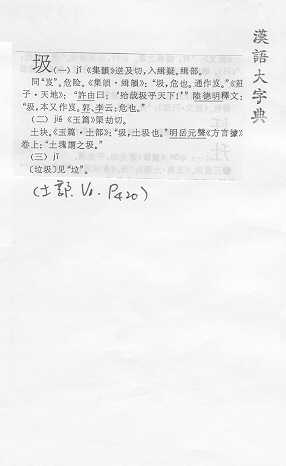 漢語大字典
圾 (一) jí 《集韻》逆及切，入緝疑。緝部。
同“岌”。危險。《集韻·緝韻》：“圾，危也。通作岌。”《莊
子·天地》：“許由曰：‘殆哉圾乎天下！’”陸德明釋文：
“圾，本又作岌。郭、李云：危也。”
(二) 《玉篇》渠劫切。
土块。《玉篇·土部》：“圾，土圾也。”明岳元聲《方言據》
卷上：“土塊謂之圾。”
(三) jī
〔垃圾〕见“垃”。
(土部. V1. P420)